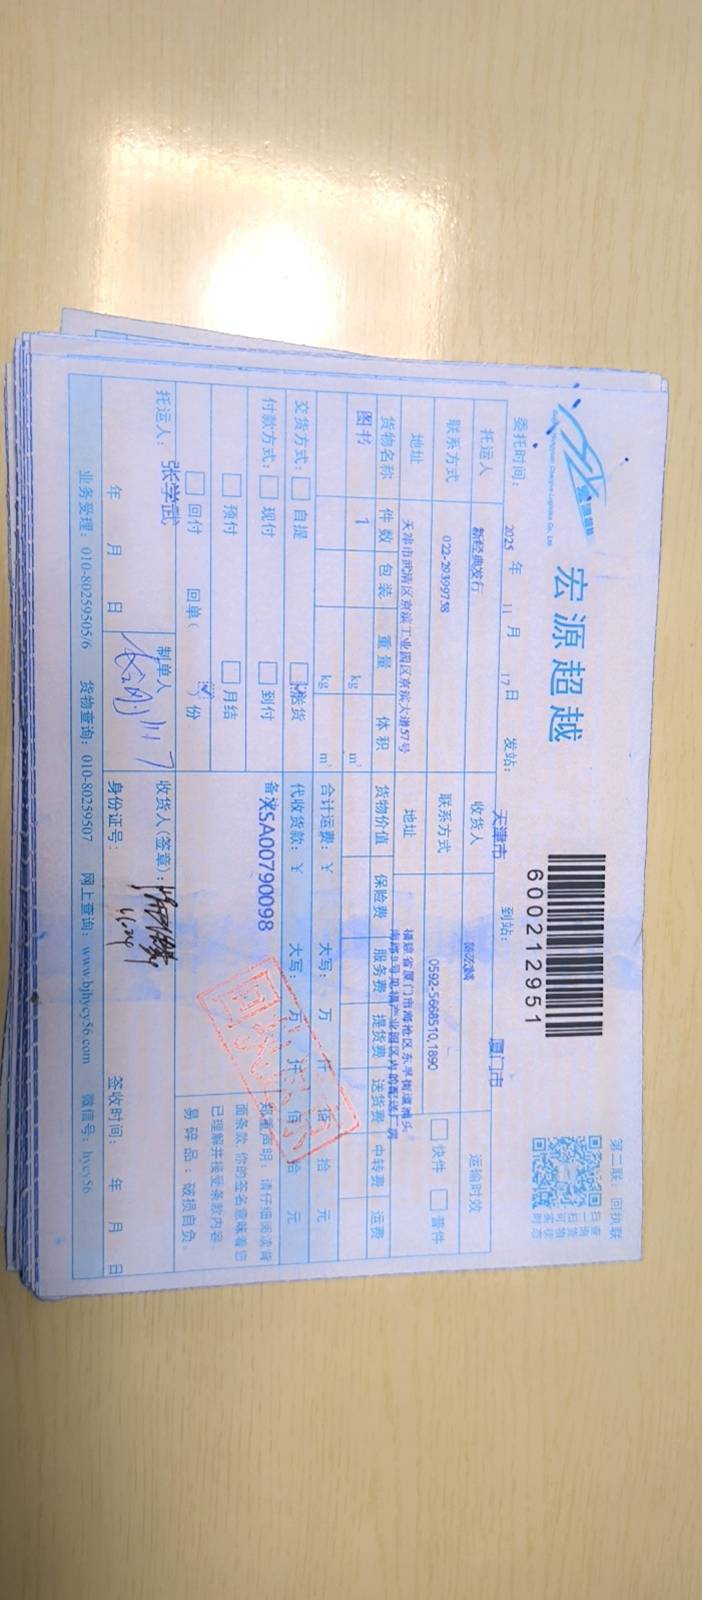 宏源超越
600212951
第二联：回执联
扫一扫
查询货物
实时状态
委托时间：2025 年 11 月 17 日 发站：天津市 到站：厦门市
托运人 新经典发行 收货人 运输时效
联系方式 022-29399758 联系方式 0592-5668510,1890 快件 普件
地址 天津市武清区京滨工业园区京滨大道57号 地址 福建省厦门市海沧区东孚街道浦头
货物名称 件数 包装 重量 体积 货物价值 保险费 服务费 提货费 送货费 中转费 运费
图书 1 kg m³
kg m³ 合计运费：¥ 大写： 万 仟 佰 拾 元
交货方式： 自提 送货 代收货款：¥ 大写： 万 仟 佰 拾 元
付款方式： 现付 到付 备注XSA00790098
预付 月结
回付 回单( 份
郑重声明：请仔细阅读背
面条款 你的签名意味着您
已理解并接受条款内容
易碎品：破损自负
托运人：张学武 制单人 收货人(签章)：
11.24
年 月 日 身份证号： 签收时间： 年 月 日
业务受理：010-80259505/6 货物查询：010-80259507 网上查询：www.bjhycy56.com 微信号：hycy56